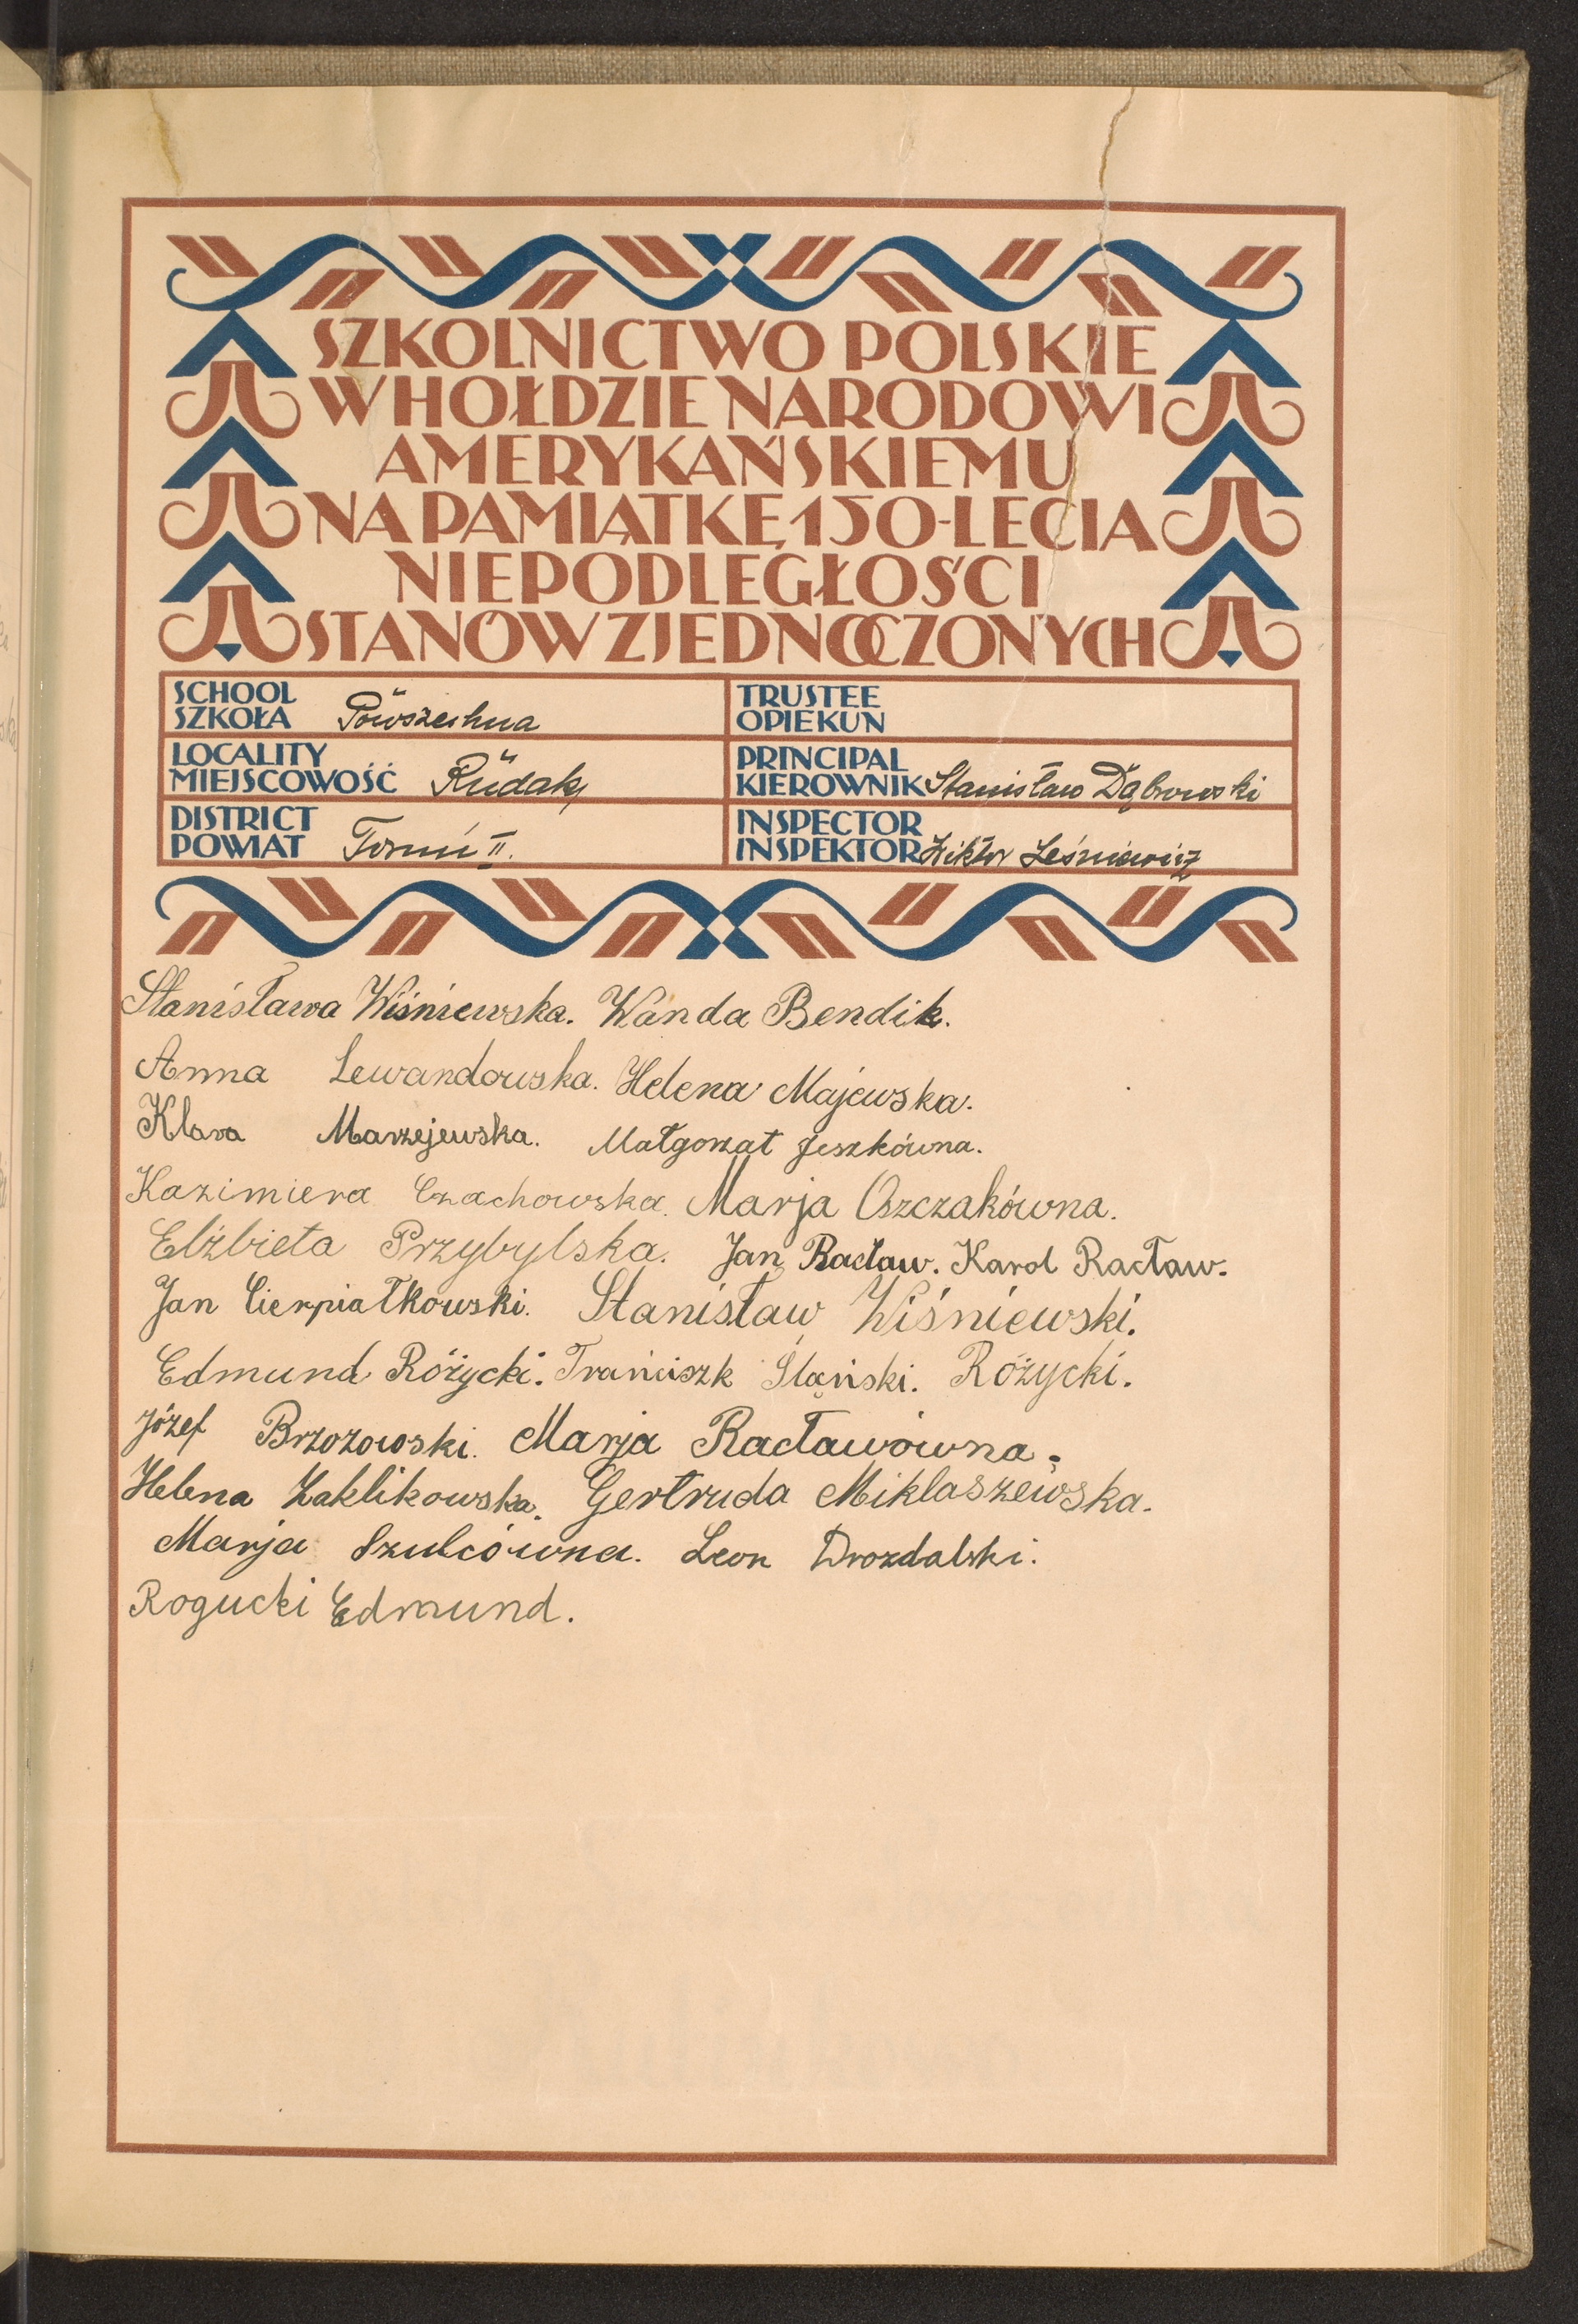 SZKOLNICTWO POLSKIE
W HOŁDZIE NARODOWI
AMERYKAŃSKIEMU
NA PAMIĄTKĘ 150-LECIA
NIEPODLEGŁOŚCI
STANÓW ZJEDNOCZONYCH
SCHOOL
SZKOŁA Powszechna
TRUSTEE
OPIEKUN
LOCALITY
MIEJSCOWOŚĆ Rudak
PRINCIPAL
KIEROWNIK Stanisław Dąbrowski
DISTRICT
POWIAT Toruń II.
INSPECTOR
INSPEKTOR Wiktor Leśniewicz
Stanisława Wiśniewska. Wanda Bendik.
Anna Lewandowska. Helena Majewska.
Klara Marzejewska. Małgorzat Jeszkówna.
Kazimiera Czachowska. Marja Oszczakówna.
Elżbieta Przybylska. Jan Racław. Karol Racław.
Jan Cierpiałkowski. Stanisław Wiśniewski.
Edmund Różycki. Franciszk Słański. Różycki.
Józef Brzozowski. Marja Racławówna.
Helena Zaklikowska. Gertruda Miklaszewska.
Marja Szulcówna. Leon Drozdalski.
Rogucki Edmund.